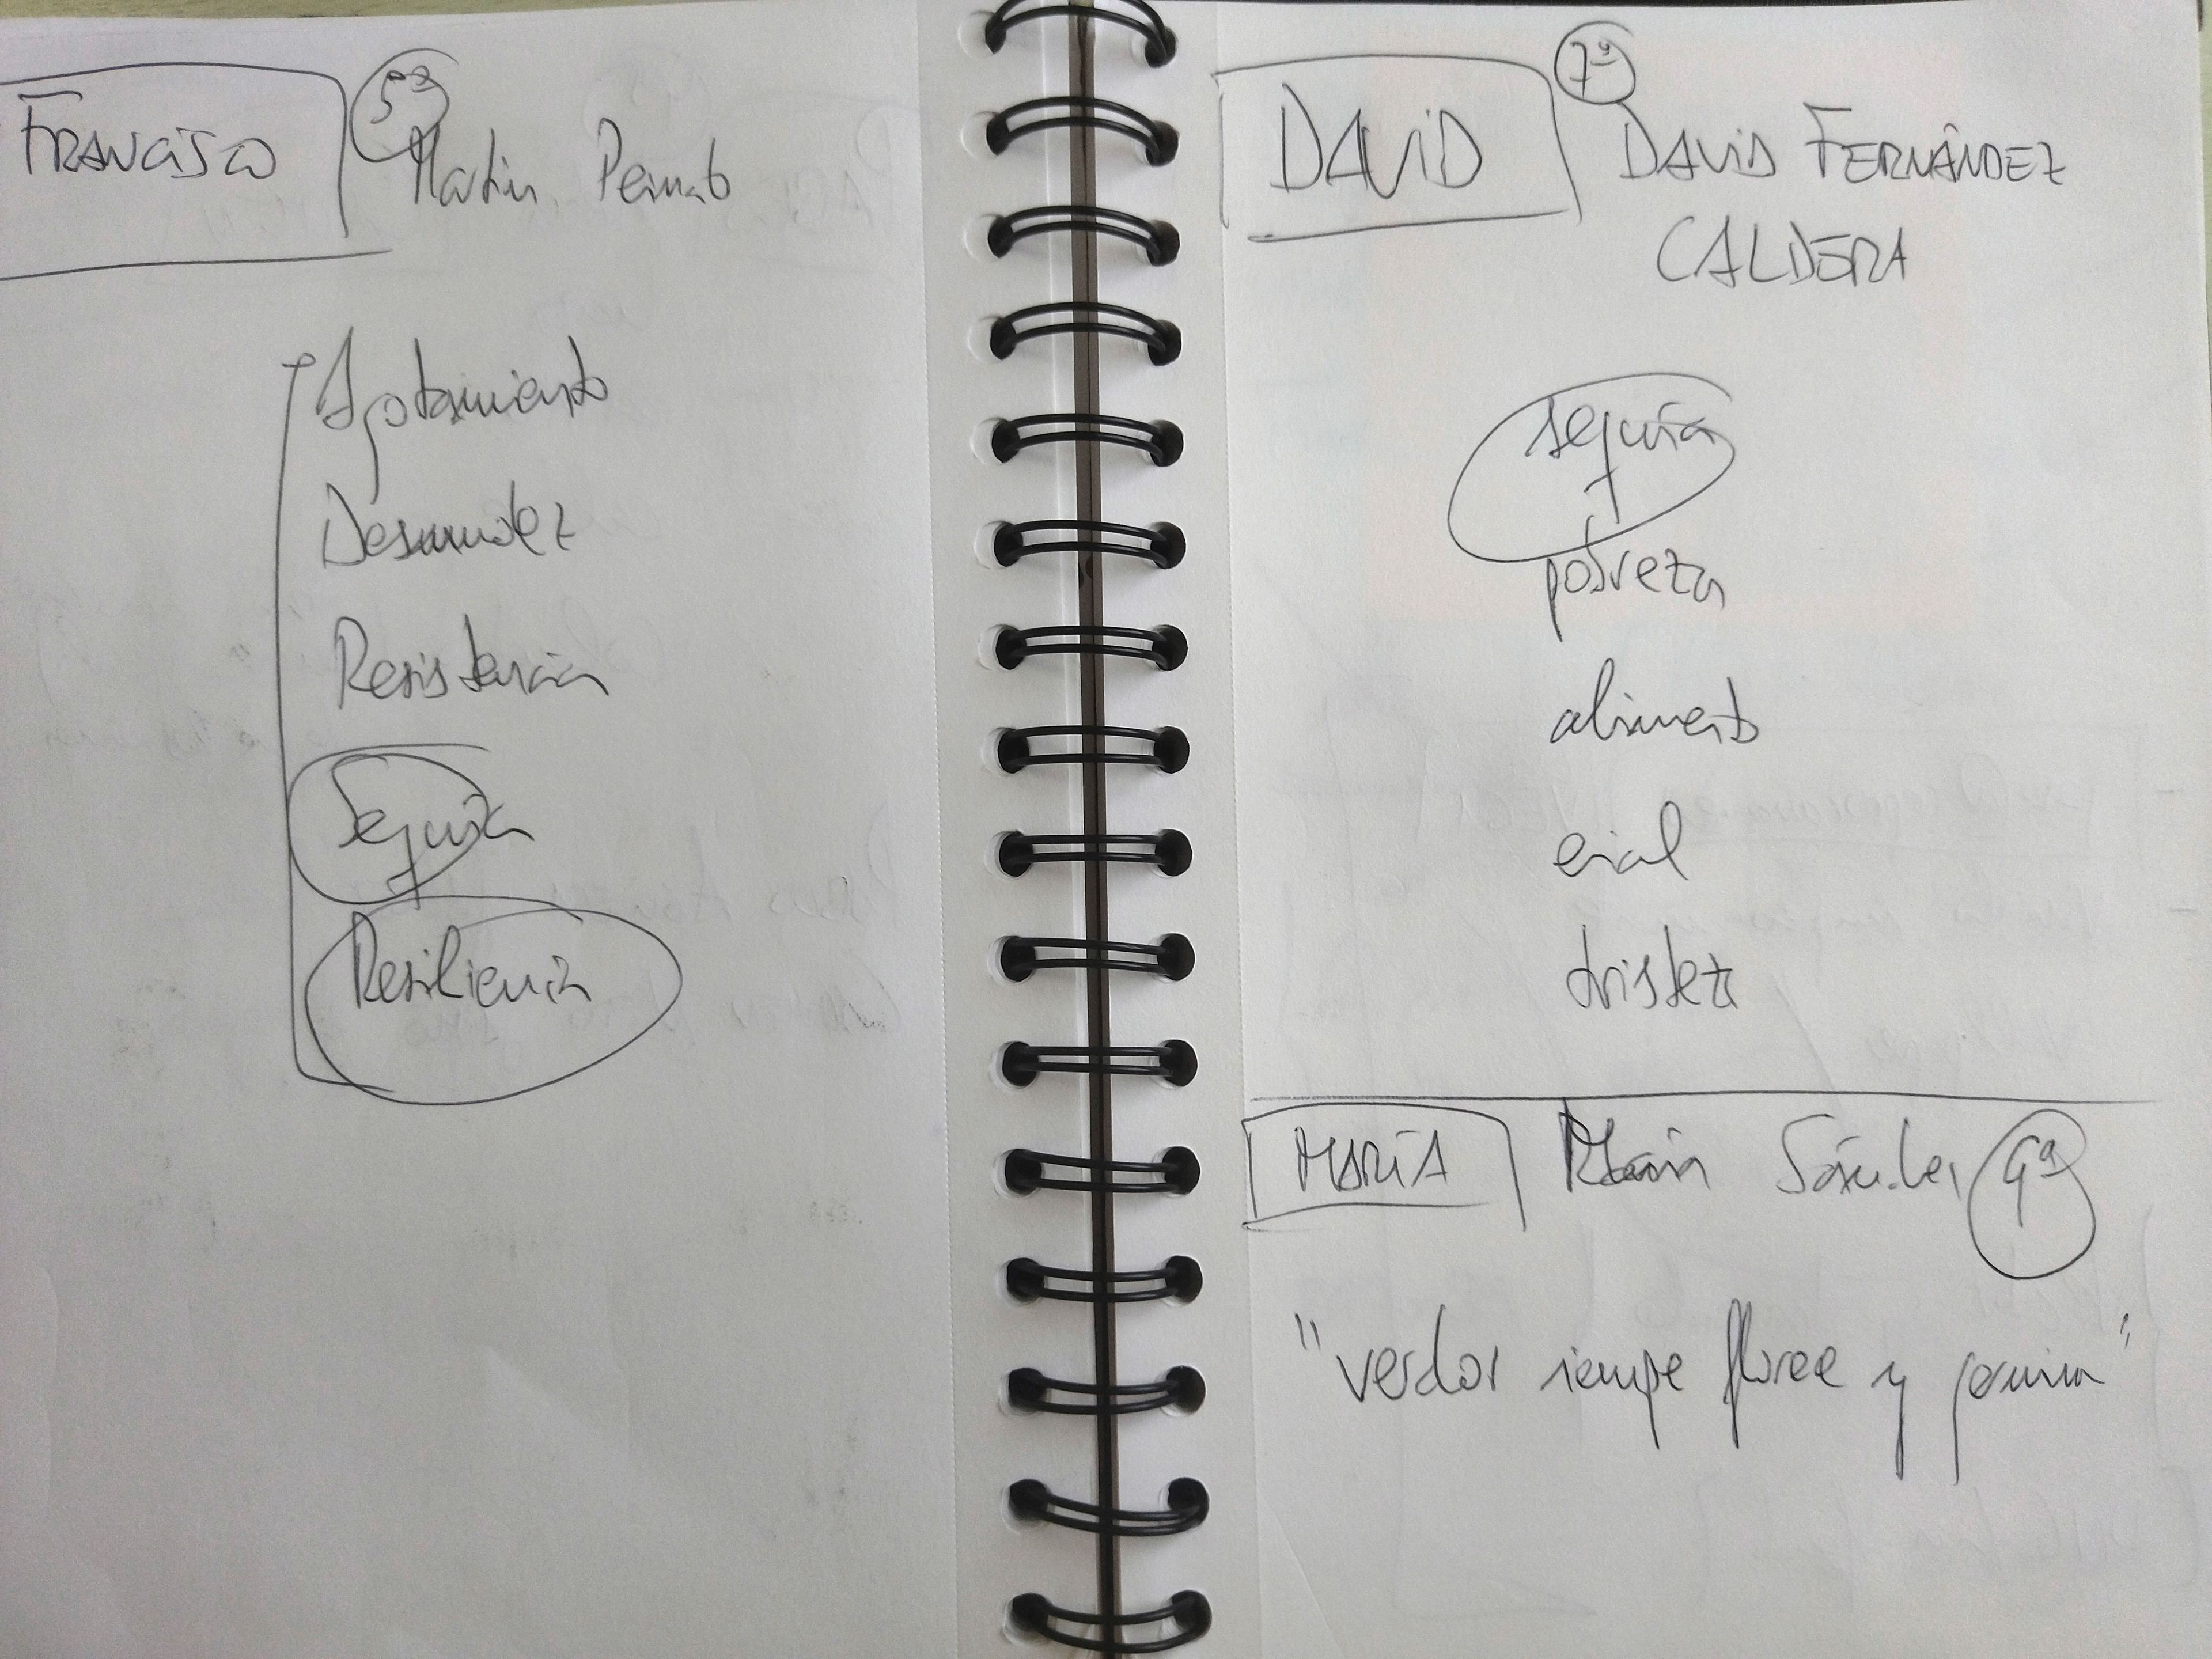 FRANCISCO 5ª
Martín
Agotamiento
Desnudez
Resistencia
Sequía
Resiliencia
DAVID 7ª
DAVID FERNÁNDEZ
CALDERA
sequía
pobreza
alimento
erial
tristeza
MARÍA María Sánchez
"verdor siempre florece y